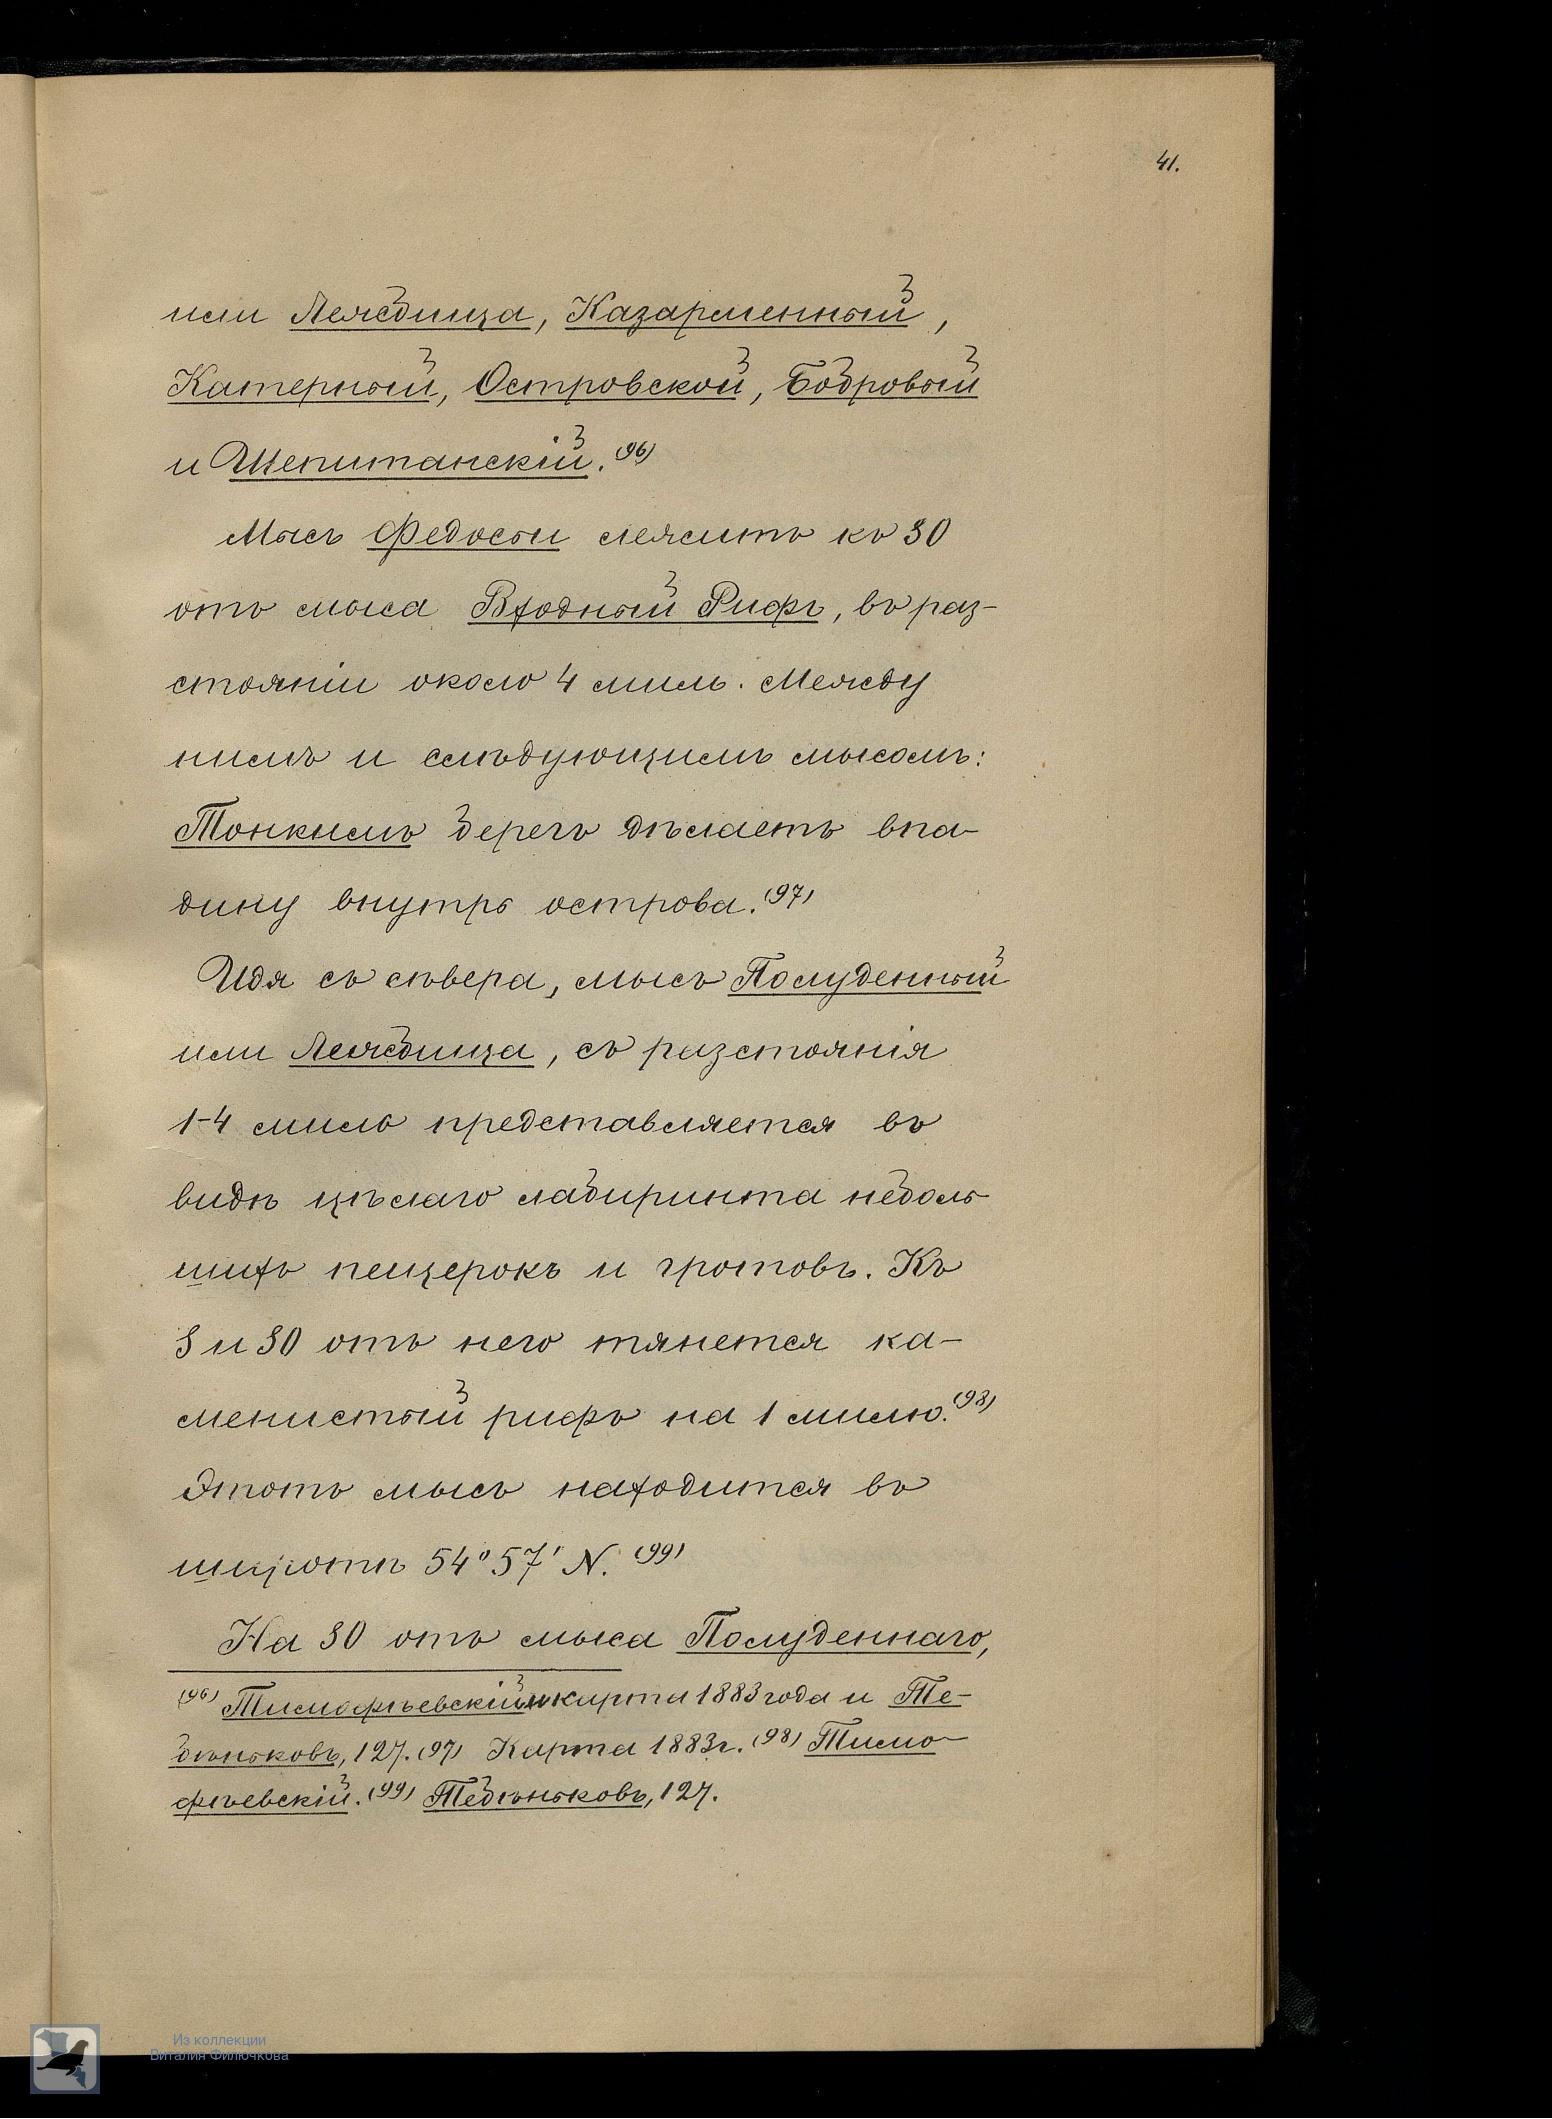 41.
или Лежбища, Казарменный,
Катерный, Островской, Бобровый
и Шепитанскій. (96)
Мысъ Федосьи лежитъ къ SO
отъ мыса Входный Рифъ, въ раз-
стояніи около 4 миль. Между
нимъ и слѣдующимъ мысомъ:
Тонкимъ берегъ дѣлаетъ впа-
дину внутрь острова. (97)
Идя съ сѣвера, мысъ Полуденный
или Лежбища, съ разстоянія
1-4 миль представляется въ
видѣ цѣлаго лабиринта неболь-
шихъ пещерокъ и гротовъ. Къ
S и SO отъ него тянется ка-
менистый рифъ на 1 милю. (98)
Этотъ мысъ находится въ
широтѣ 54° 57' N. (99)
На SO отъ мыса Полуденнаго,
(96) Тимофѣевскій и карта 1883 года и Те-
бѣньковъ, 127. (97) Карта 1883 г. (98) Тимо-
фѣевскій. (99) Тебѣньковъ, 127.
Из коллекции
Виталия Филючкова